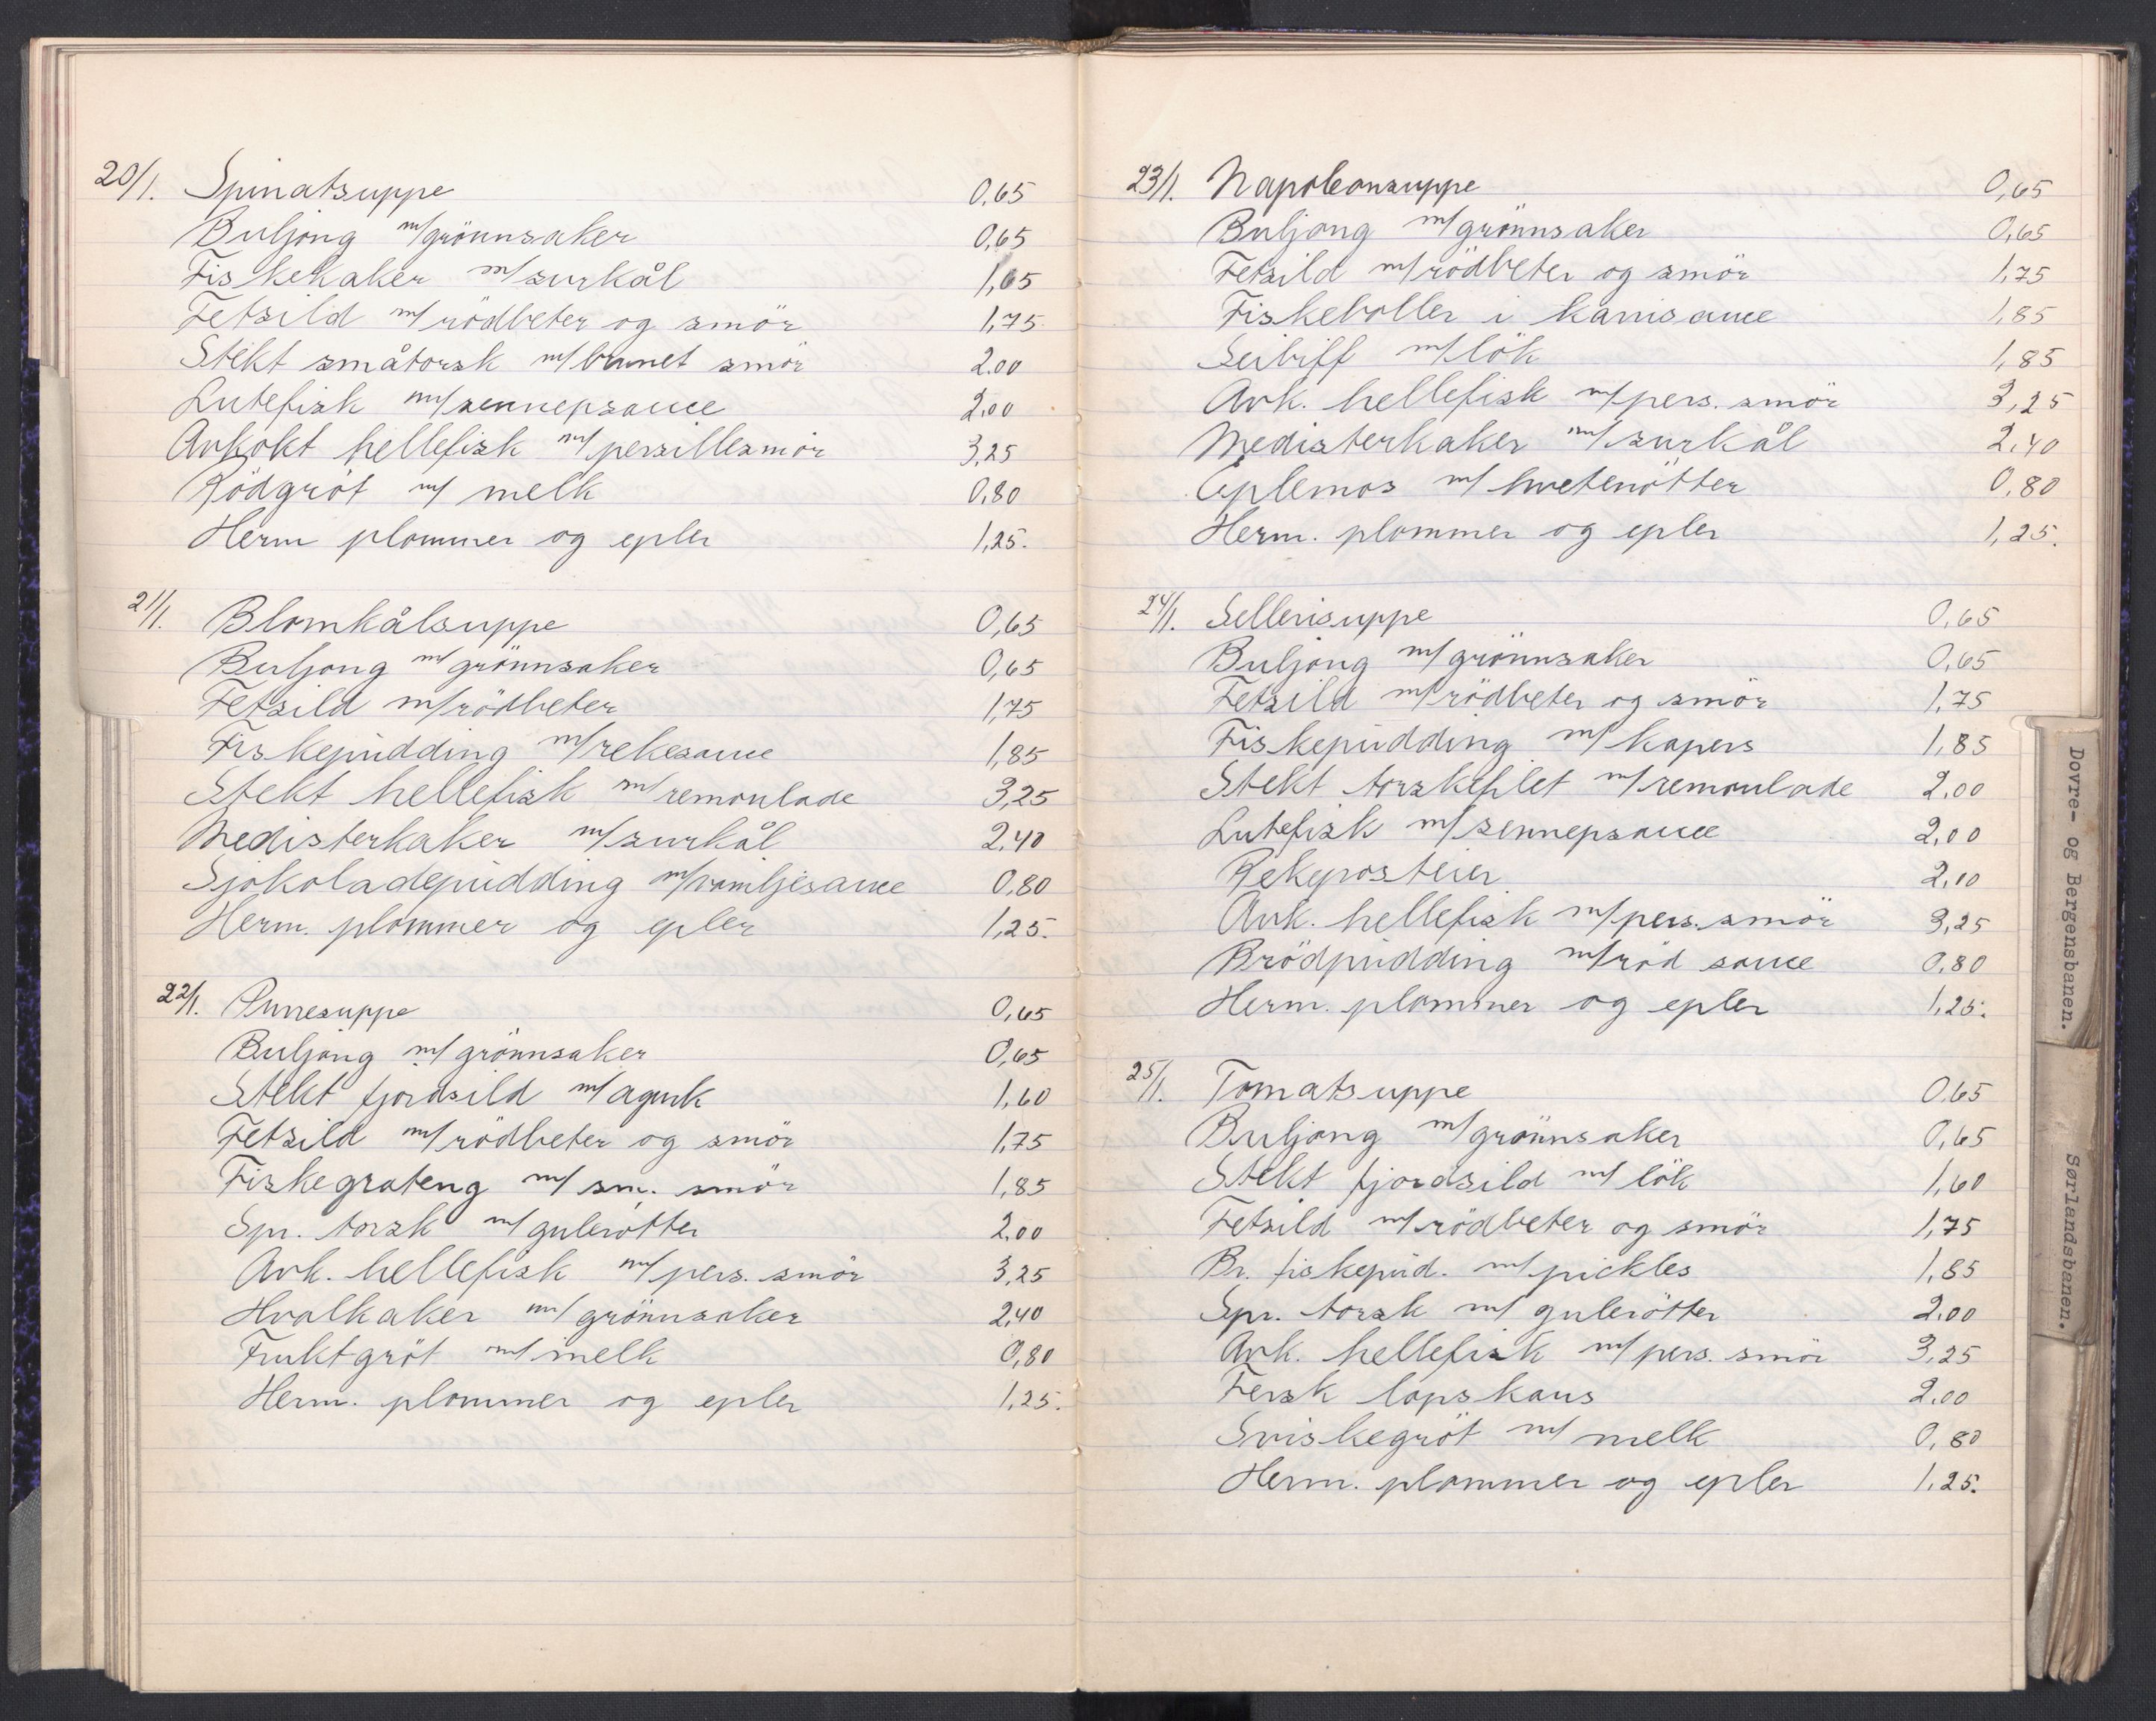 20/1. Spinatsuppe 0,65
Buljong m/grönnsaker 0,65
Fiskekaker m/surkål 1,65
Fetsild m/rödbeter og smör 1,75
Stekt småtorsk m/brunet smör 2.00
Lutefisk m/sennepsauce 2,00
Avkokt hellefisk m/persillesmör 3,25
Rödgröt m/ melk 0,80
Herm plommer og epler 1,25.
21/1. Blomkålsuppe 0,65
Buljong m/grönnsaker 0,65
Fetsild m/rödbeter 1,75
Fiskepudding m/rekesauce 1,85
Stekt hellefisk m/remoulade 3,25
Medisterkaker m/surkål 2,40
Sjokoladepudding m/vaniljesauce 0,80
Herm. plommer og epler 1,25.
22/1. Purresuppe 0,65
Buljong m/grönnsaker 0,65
Stekt fjordsild m/agurk 1,60
Fetsild m/rödbeter og smör 1,75
Fiskegrateng m/ sm. smör 1,85
Spr. torsk m/gulerötter 2,00
Avk. hellefisk m/pers. smör 3,25
Hvalkaker m/grönnsaker 2,40
Fruktgröt m/melk 0,80
Herm. plommer og epler 1,25.
23/1. Napoleonsuppe 0,65
Buljong m/grönnsaker 0,65
Fetsild m/rödbeter og smör 1,75
Fiskeboller i karrisauce 1,85
Seibiff m/lök 1,85
Avk. hellefisk m/pers. smör 3,25
Medisterkaker m/surkål 2,40
Eplemos m/ hvetenötter 0,80
Herm. plommer og epler 1,25.
24/1. Sellerisuppe 0,65
Buljong m/grönnsaker 0,65
Fetsild m/rödbeter og smör 1,75
Fiskepudding m/kapers 1,85
Stekt torskefilet m/remoulade 2,00
Lutefisk m/sennepsauce 2,00
Rekeposteier 2,10
Avk. hellefisk m/pers. smör 3,25
Brödpudding m/röd sauce 0,80
Herm. plommer og epler 1,25.
25/1. Tomatsuppe 0,65
Buljong m/grönnsaker 0,65
Stekt fjordsild m/ lök 1,60
Fetsild m/rödbeter og smör 1,75
Br. fiskepud. m/pickles 1,85
Spr. torsk m/ gulerötter 2.00
Avk. hellefisk m/pers. smör 3,25
Fersk lapskaus 2.00
Sviskegröt m/ melk 0,80
Herm. plommer og epler 1,25.
Dovre- og Bergensbanen.
Sørlandsbanen.